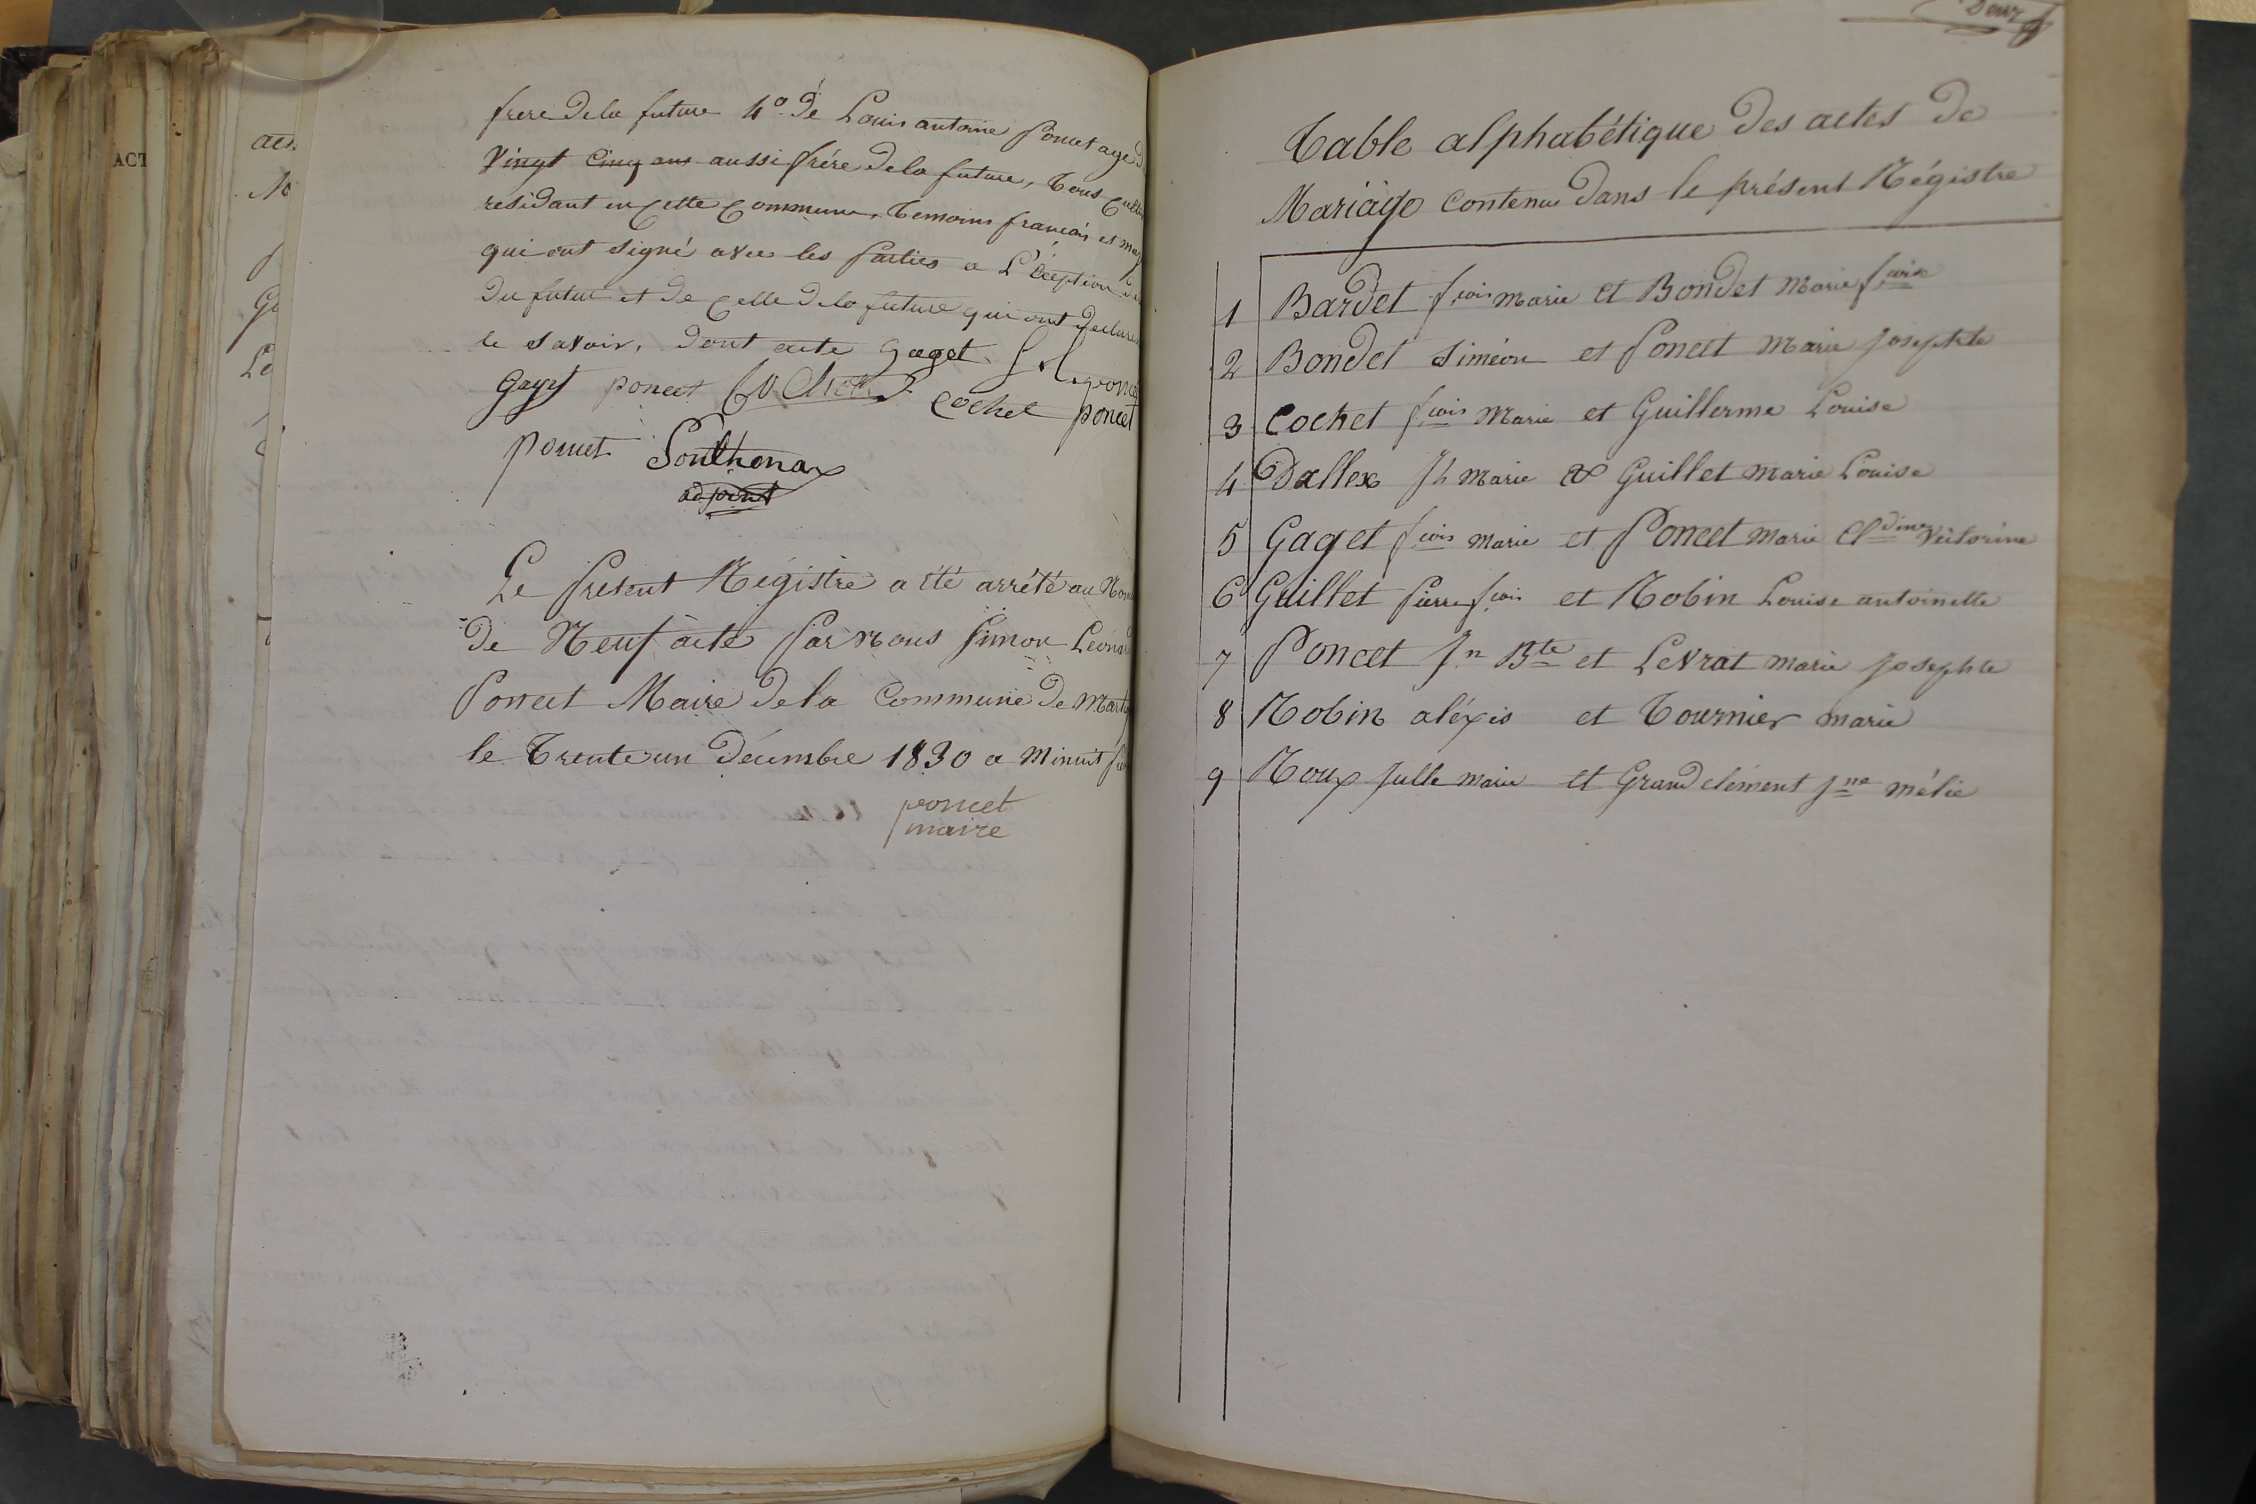 frere de la future 4° de Louis antoine Poncet age d
Vingt Cinq ans aussi frére de la future, Tous Cult
residant en Cette Commune, Temoins francais et maj
qui ont signé avec les Parties a L'éxéption de
du futur et de Celle de la future qui ont declaré
le savoir, dont acte gaget
Gaget poncet Cochet poncet
poncet Ponthenax
adjoint
Le Present Régistre a été arrété au Nom
de Neuf acte Par Nous Simon Leonar
Poncet Maire de la Commune de Mart
le Trente un Décembre 1830 a Minuit
poncet
maire
ACT
Deux
Table alphabétique des actes de
Mariage contenu dans le présent Régistre
1 Bardet fcois marie et Bondet marie fcoise
2 Bondet Siméon et Poncet marie Josephte
3 Cochet fcois Marie et Guillerme Louise
4 Dallex Jh Marie & Guillet marie Louise
5 Gaget fcois marie et Poncet marie Cldine Victorine
6 Guillet Pierre fcois et Robin Louise antoinette
7 Poncet Jn Bte et Levrat marie Josephte
8 Robin aléxis et Tournier marie
9 Roux Julle marie et Grandclément Jne mélie